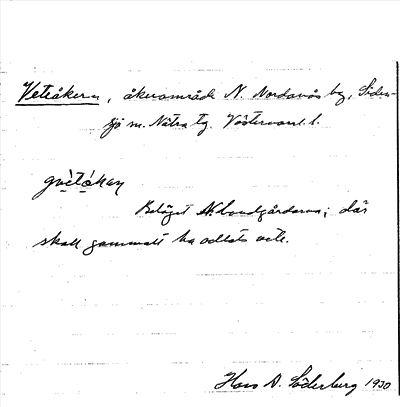 Veteåkern, åkerområde N. Nordanås by, Siden-
sjö sn. Nätra tg. Västernorrl. l.
gvètåken
Beläget N. bondgårdarna; där
skall gammalt ha odlats vete.
Hans D. Söderberg 1930